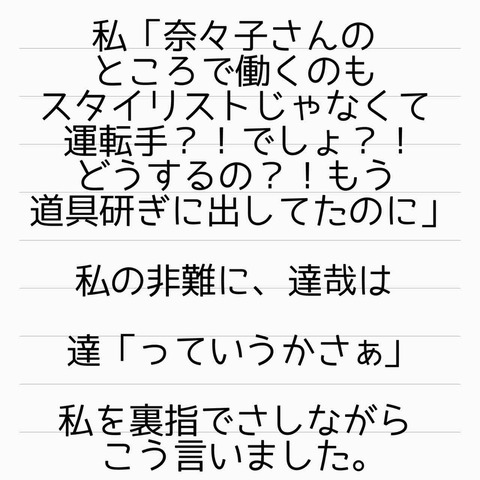 私「奈々子さんの
ところで働くのも
スタイリストじゃなくて
運転手？！でしょ？！
どうするの？！もう
道具研ぎに出してたのに」
私の非難に、達哉は
達「っていうかさぁ」
私を裏指でさしながら
こう言いました。